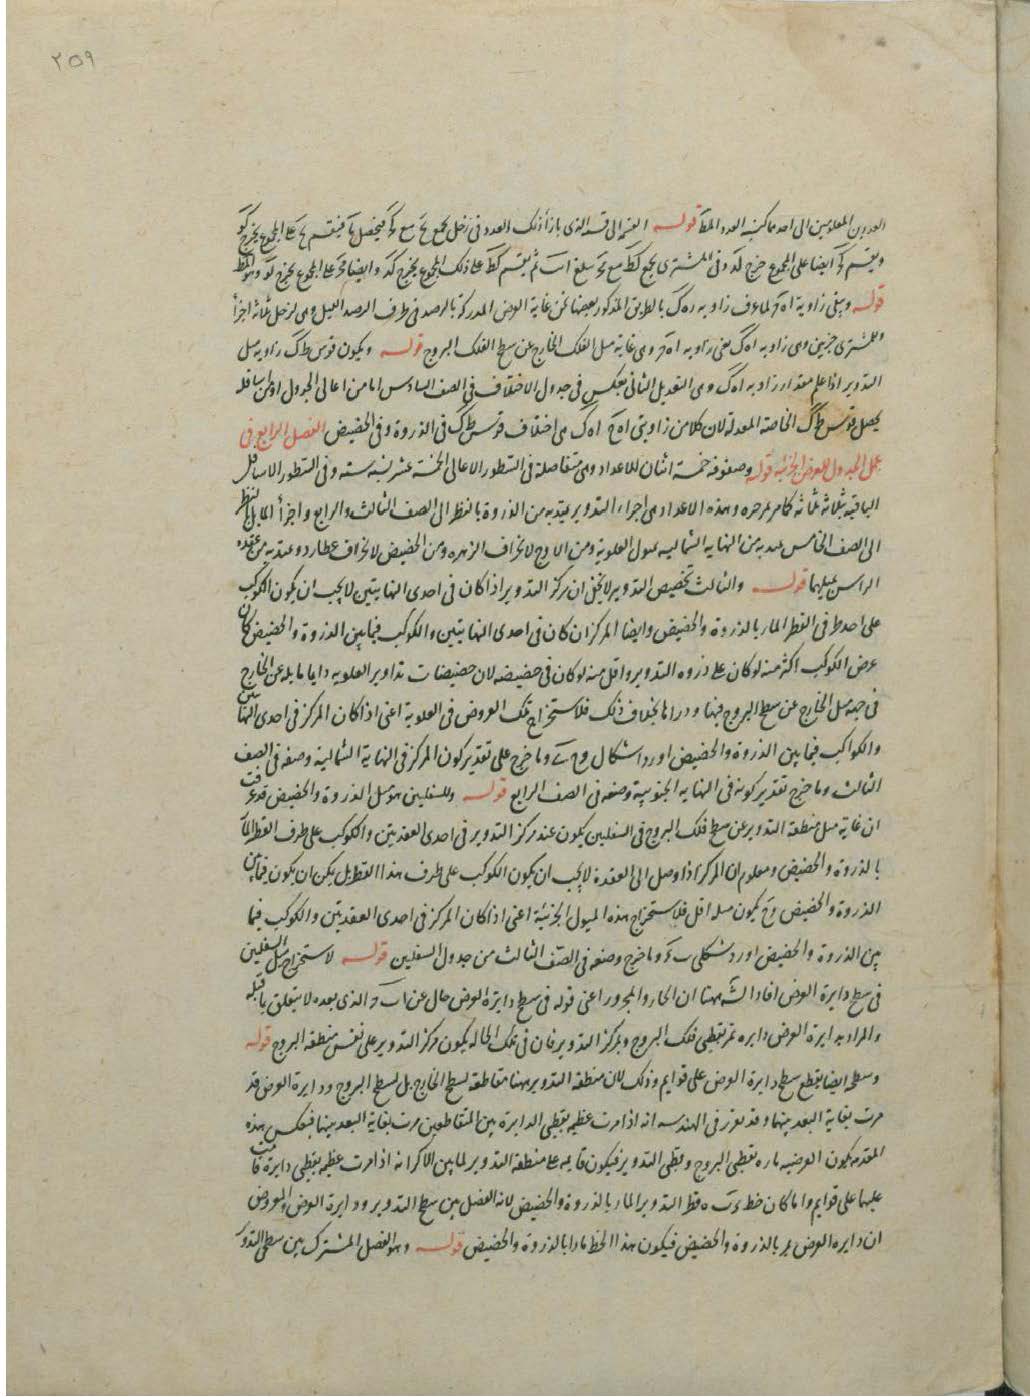 ٢٥٩
العددين المعلومين الى احدهما كنسبة العدد قوله القسم الى قسمه الذى بازاء ذلك العدد فى زحل يجمع مع فيحصل فيقسم على المجموع يخرج
ويقسم ايضا على المجموع خرج وفى المشترى يجمع مع يبلغ ثم يقسم على ذلك المجموع يخرج وايضا على المجموع يخرج وهو
قوله ويبقى زاوية لما عرف زاوية بالطريق المذكور بعضها من غاية العرض المدركة بالرصد فى طرف الرصد الميل وهى لزحل ثلاثة اجزأ
وللمشترى جزئين وهى زاوية يعنى زاوية وهى غاية ميل الفلك الخارج عن سطح الفلك البروج قوله ويكون قوس زاوية ميل
التدوير اذا علم مقدار زاوية وهى التعديل الثانى يعكس فى جدول الاختلاف فى الصف السادس اما من اعالى الجدول او من اسافله
يحصل قوس الخاصة المعدلة لان كلا من زاويتى هى اختلاف قوس فى الذروة وفى الحضيض الفصل الرابع فى
عمل الجدول للعروض الجزئية قوله وصفوفه خمسة اثنان للاعداد وهى متفاضلة فى السطور الاعالى الخمسة عشر بستة ستة وفى السطور الاسافل
الباقية بثلاثة ثلاثة كما مر وهذه الاعداد هى اجزاء التدوير مبتدية من الذروة بالنظر الى الصف الثالث والرابع واجزأ المايل بالنظر
الى الصف الخامس مبتدية من النهاية الشمالية لميول العلوية ومن الاوج لانحراف الزهره ومن الحضيض لانحراف عطارد ومبتدية من عقدة
الراس لميلهما قوله والثالث تخصيص التدوير لا يخفى ان مركز التدوير اذا كان فى احدى النهايتين لا يجب ان يكون الكوكب
على احد طرفى القطر المار بالذروة والحضيض وايضا المركز ان كان فى احدى النهايتين والكوكب فيما بين الذروة والحضيض كان
عرض الكوكب اكثر منه لو كان على ذروة التدوير واقل منه لو كان فى حضيضه لان حضيضات تداوير العلويه دايما مايلة عن الخارج
فى جهة ميل الخارج عن سطح البروج فيها وذراها بخلاف ذلك فلاستخراج تلك العروض فى العلوية اعنى اذا كان المركز فى احدى النهايتين
والكواكب فيما بين الذروة والحضيض اورد اشكال وما خرج على تقدير كون المركز فى النهاية الشمالية وضعه فى الصف
الثالث وما خرج تقدير كونه فى النهاية الجنوبية وضعه فى الصف الرابع قوله وللسفليين هو ميل الذروة والحضيض قد عرفت
ان غاية ميل منطقة التدوير عن سطح فلك البروج فى السفليين يكون عند مركز التدوير فى احدى العقدتين والكوكب على طرف القطر المار
بالذروة والحضيض ومعلوم ان المركز اذا وصل الى العقدة لا يجب ان يكون الكوكب على طرف هذا القطر بل يمكن ان يكون فيما بين
الذروة والحضيض وح يكون ميله اقل فلاستخراج هذه الميول الجزئية اعنى اذا كان المركز فى احدى العقدتين والكوكب فيما
بين الذروة والحضيض اورد شكلى وما خرج وضعه فى الصف الثالث من جدول السفليين قوله لاستخراج ميل السفليين
فى سطح دايرة العرض افاد الشه ههنا ان الجار والمجرور اعنى قوله فى سطح دايرة العرض حال عن الذى بعده لا يتعلق بما قبله
والمراد بدايرة العرض دايره تمر بقطبى فلك البروج وبمركز التدوير فان فى تلك الحالة يكون مركز التدوير على نفس منطقة البروج قوله
وسطحه ايضا يقطع سطح دايرة العرض على قوايم وذلك لان منطقة التدوير ههنا مقاطعة لسطح الخارج بل لسطح البروج ودايرة العرض قد
مرت بغاية البعد بينهما وقد تقرر فى الهندسه انه اذا مرت عظيمة بقطبى الدايرة بين المتقاطعين مرت بغاية البعد بينهما فبعكس هذه
المقدمة يكون العرضيه مارة بقطبى البروج وبقطبى التدوير فيكون قايمة على منطقة التدوير لما بين الاكر انه اذا مرت عظيمة بقطبى دايرة قامت
عليها على قوايم واما كان خط قطر التدوير المار بالذروة والحضيض لانه الفصل بين سطح التدوير ودايرة العرض والمفروض
ان دايره العرض يمر بالذروة والحضيض فيكون هذا الخط مارا بالذروة والحضيض قوله وهو الفصل المشترك بين سطحى التدوير